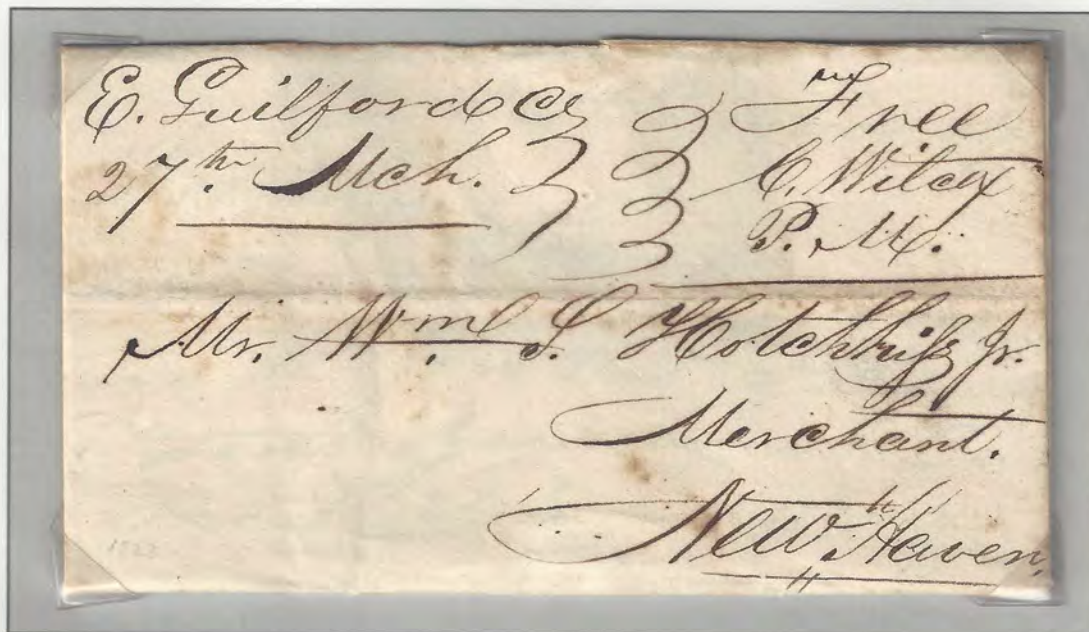 E. Guilford Ct
27th Mch.
Free
C. Wilcox
P. M.
Mr. Wm. S. Hotchkiss Jr.
Merchant.
New Haven,
1823